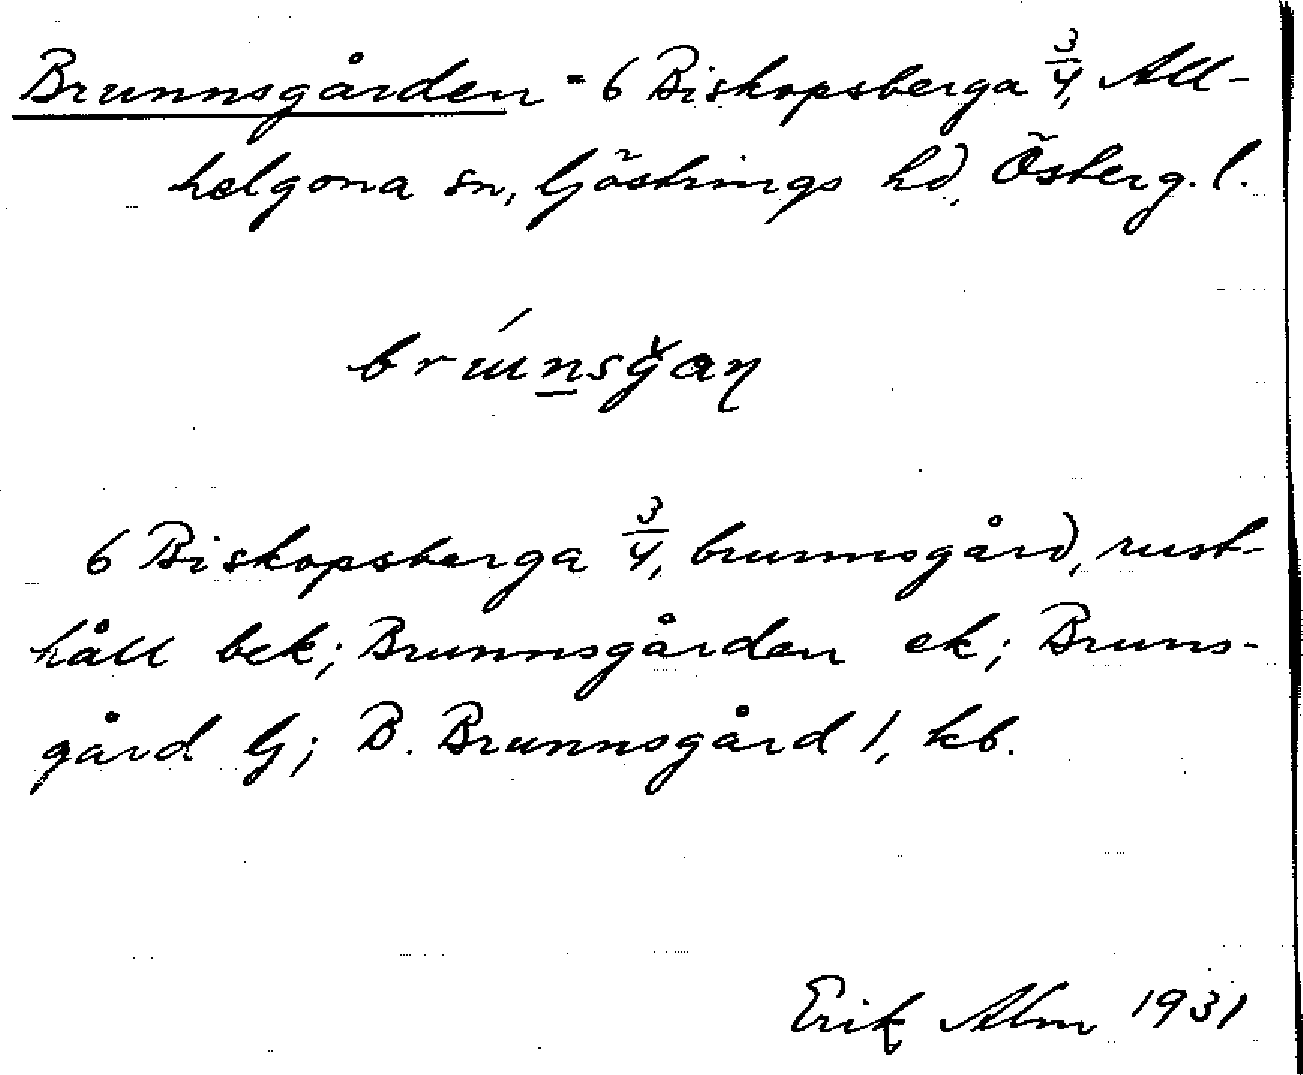 Brunnsgården = 6 Biskopsberga 3/4, All-
helgona sn, Göstrings hd, Österg. l.
6 Biskopsberga 3/4, brunnsgård, rust-
håll bek; Brunnsgården ek; Bruns-
gård G; B. Brunnsgård 1, kb.
Erik Alm 1931